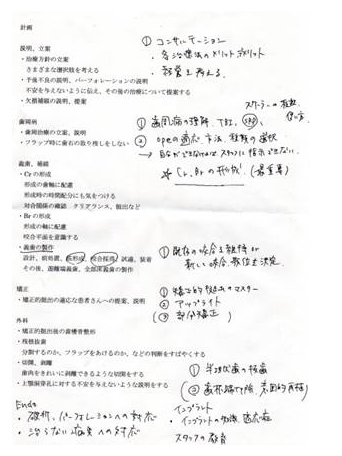 計画
説明、立案
・治療方針の立案
さまざまな選択肢を考える
・予後不良の説明、パーフォレーションの説明
不安を与えないように伝え、その後の治療について提案する
・欠損補綴の説明、提案
① コンサルテーション
・各治療法のメリットデメリット
・経営も考える
スケーラーの種類
使い方
歯周病
・歯周治療の立案、説明
・フラップ時に歯石の取り残しをしない
① 歯周病の理解、TBI、SRP
② opeの適応、方法、種類の選択
→自分ができなければ、スタッフに指示できない。
☆ Cr, Brの形成 (最重要)
義歯、補綴
・Crの形成
形成の歯軸に配慮
形成時の時間配分にも気をつける
対合関係の確認 クリアランス、挺出など
・Brの形成
形成の軸に配慮
咬合平面を意識する
・義歯の製作
設計、前処置、筋形成、咬合採得、試適、装着
その後、遊離端義歯、全部床義歯の製作
① 既存の咬合を維持か
新しい咬合、数位を決定
矯正
・矯正的挺出の適応な患者さんへの提案、説明
① 矯正的挺出のマスター
② アップライト
(③ 部分矯正)
外科
・矯正的挺出後の歯槽骨整形
・残根抜歯
分割するのか、フラップをあけるのか、などの判断をすばやくする
・切開、剥離
歯肉をきれいに剥離できるような切開をする
・上顎洞穿孔に対する不安を与えないような説明をする
① 半埋伏歯の抜歯
(② 歯根端切除、意図的再植)
Endo
・破折、パーフォレーションへの対応
・治らない病変への対応
インプラント
・インプラントの知識、適応症
スタッフの教育